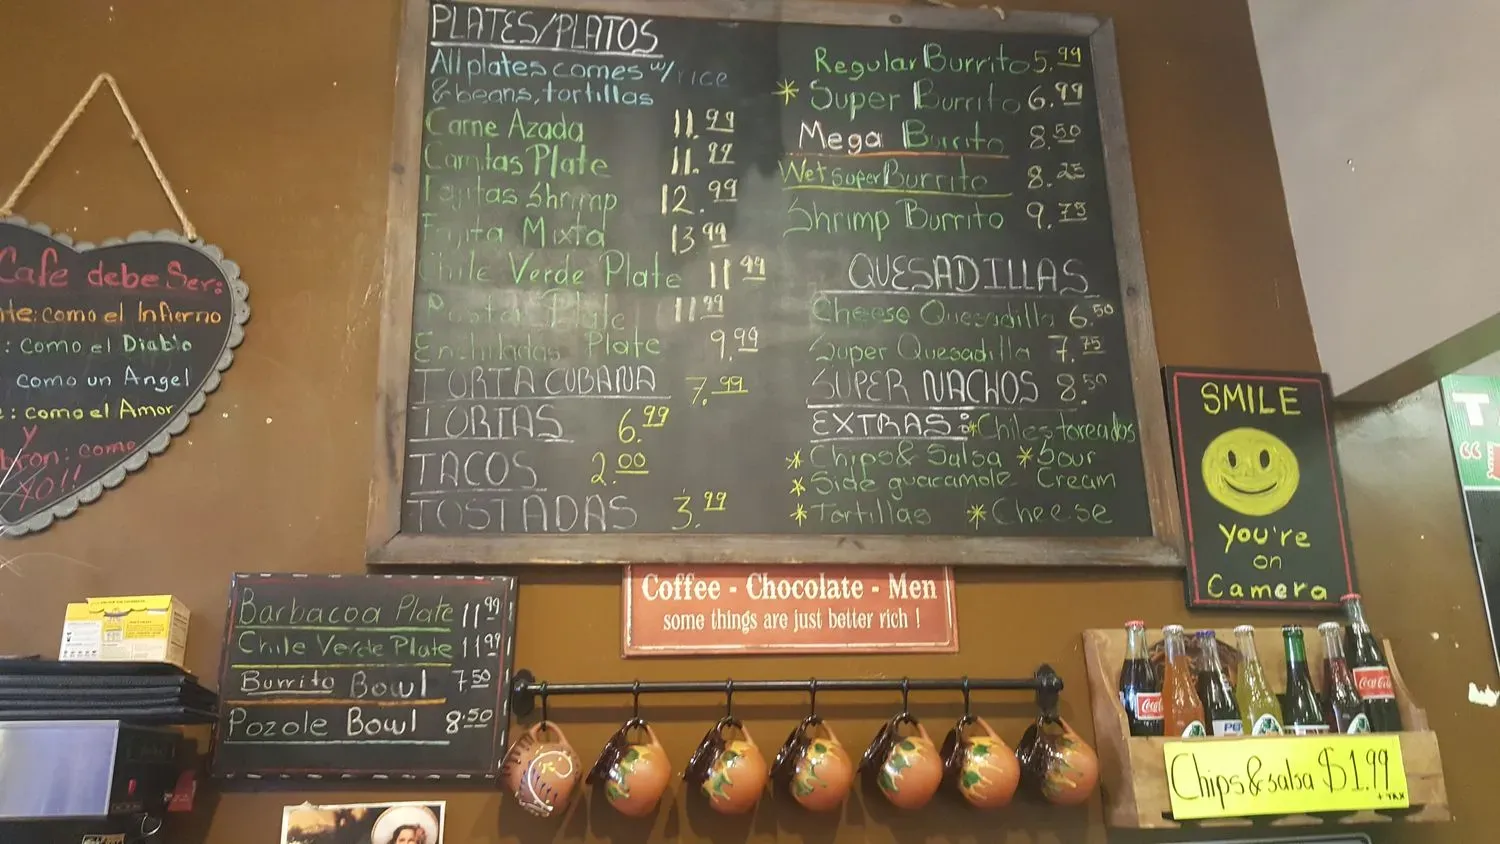 PLATES/PLATOS
All plates comes w/ rice
& beans, tortillas
Carne Azada 11.99
Carnitas Plate 11.99
Fajitas Shrimp 12.99
Fajita Mixta 13.99
Chile Verde Plate 11.99
Plate 11.99
Enchiladas Plate 9.99
TORTA CUBANA 7.99
TORTAS 6.99
TACOS 2.00
TOSTADAS 3.99
Regular Burrito 5.99
* Super Burrito 6.99
Mega Burrito 8.50
Wet super Burrito 8.25
Shrimp Burrito 9.75
QUESADILLAS
Cheese Quesadilla 6.50
Super Quesadilla 7.75
SUPER NACHOS 8.50
EXTRAS: * Chiles toreados
* Chips & Salsa * Sour
* Side guacamole Cream
* Tortillas * Cheese
Cafe debe Ser:
como el Infierno
: como el Diablo
como un Angel
: como el Amor
y
como
yo!!
Barbacoa Plate 11.99
Chile Verde Plate 11.99
Burrito Bowl 7.50
Pozole Bowl 8.50
Coffee - Chocolate - Men
some things are just better rich !
SMILE
you're
on
Camera
Coca-Cola
Chips & salsa $1.99
+ TAX